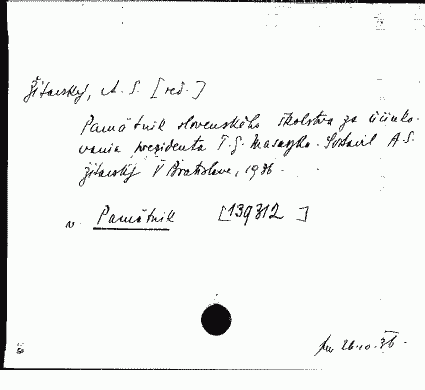 Žitavský, A. S. [red.]
Památnik slovenského školstva za účinko-
vania prezidenta T. G. Masaryka. Sostavil A. S.
Žitavský V Bratislave, 1936.
v Památnik [139312]
26.10.36